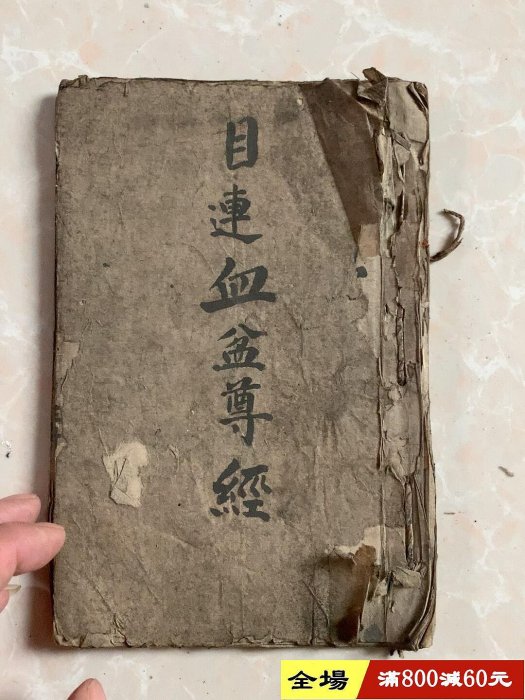 目連血盆尊經
全場 滿800減60元